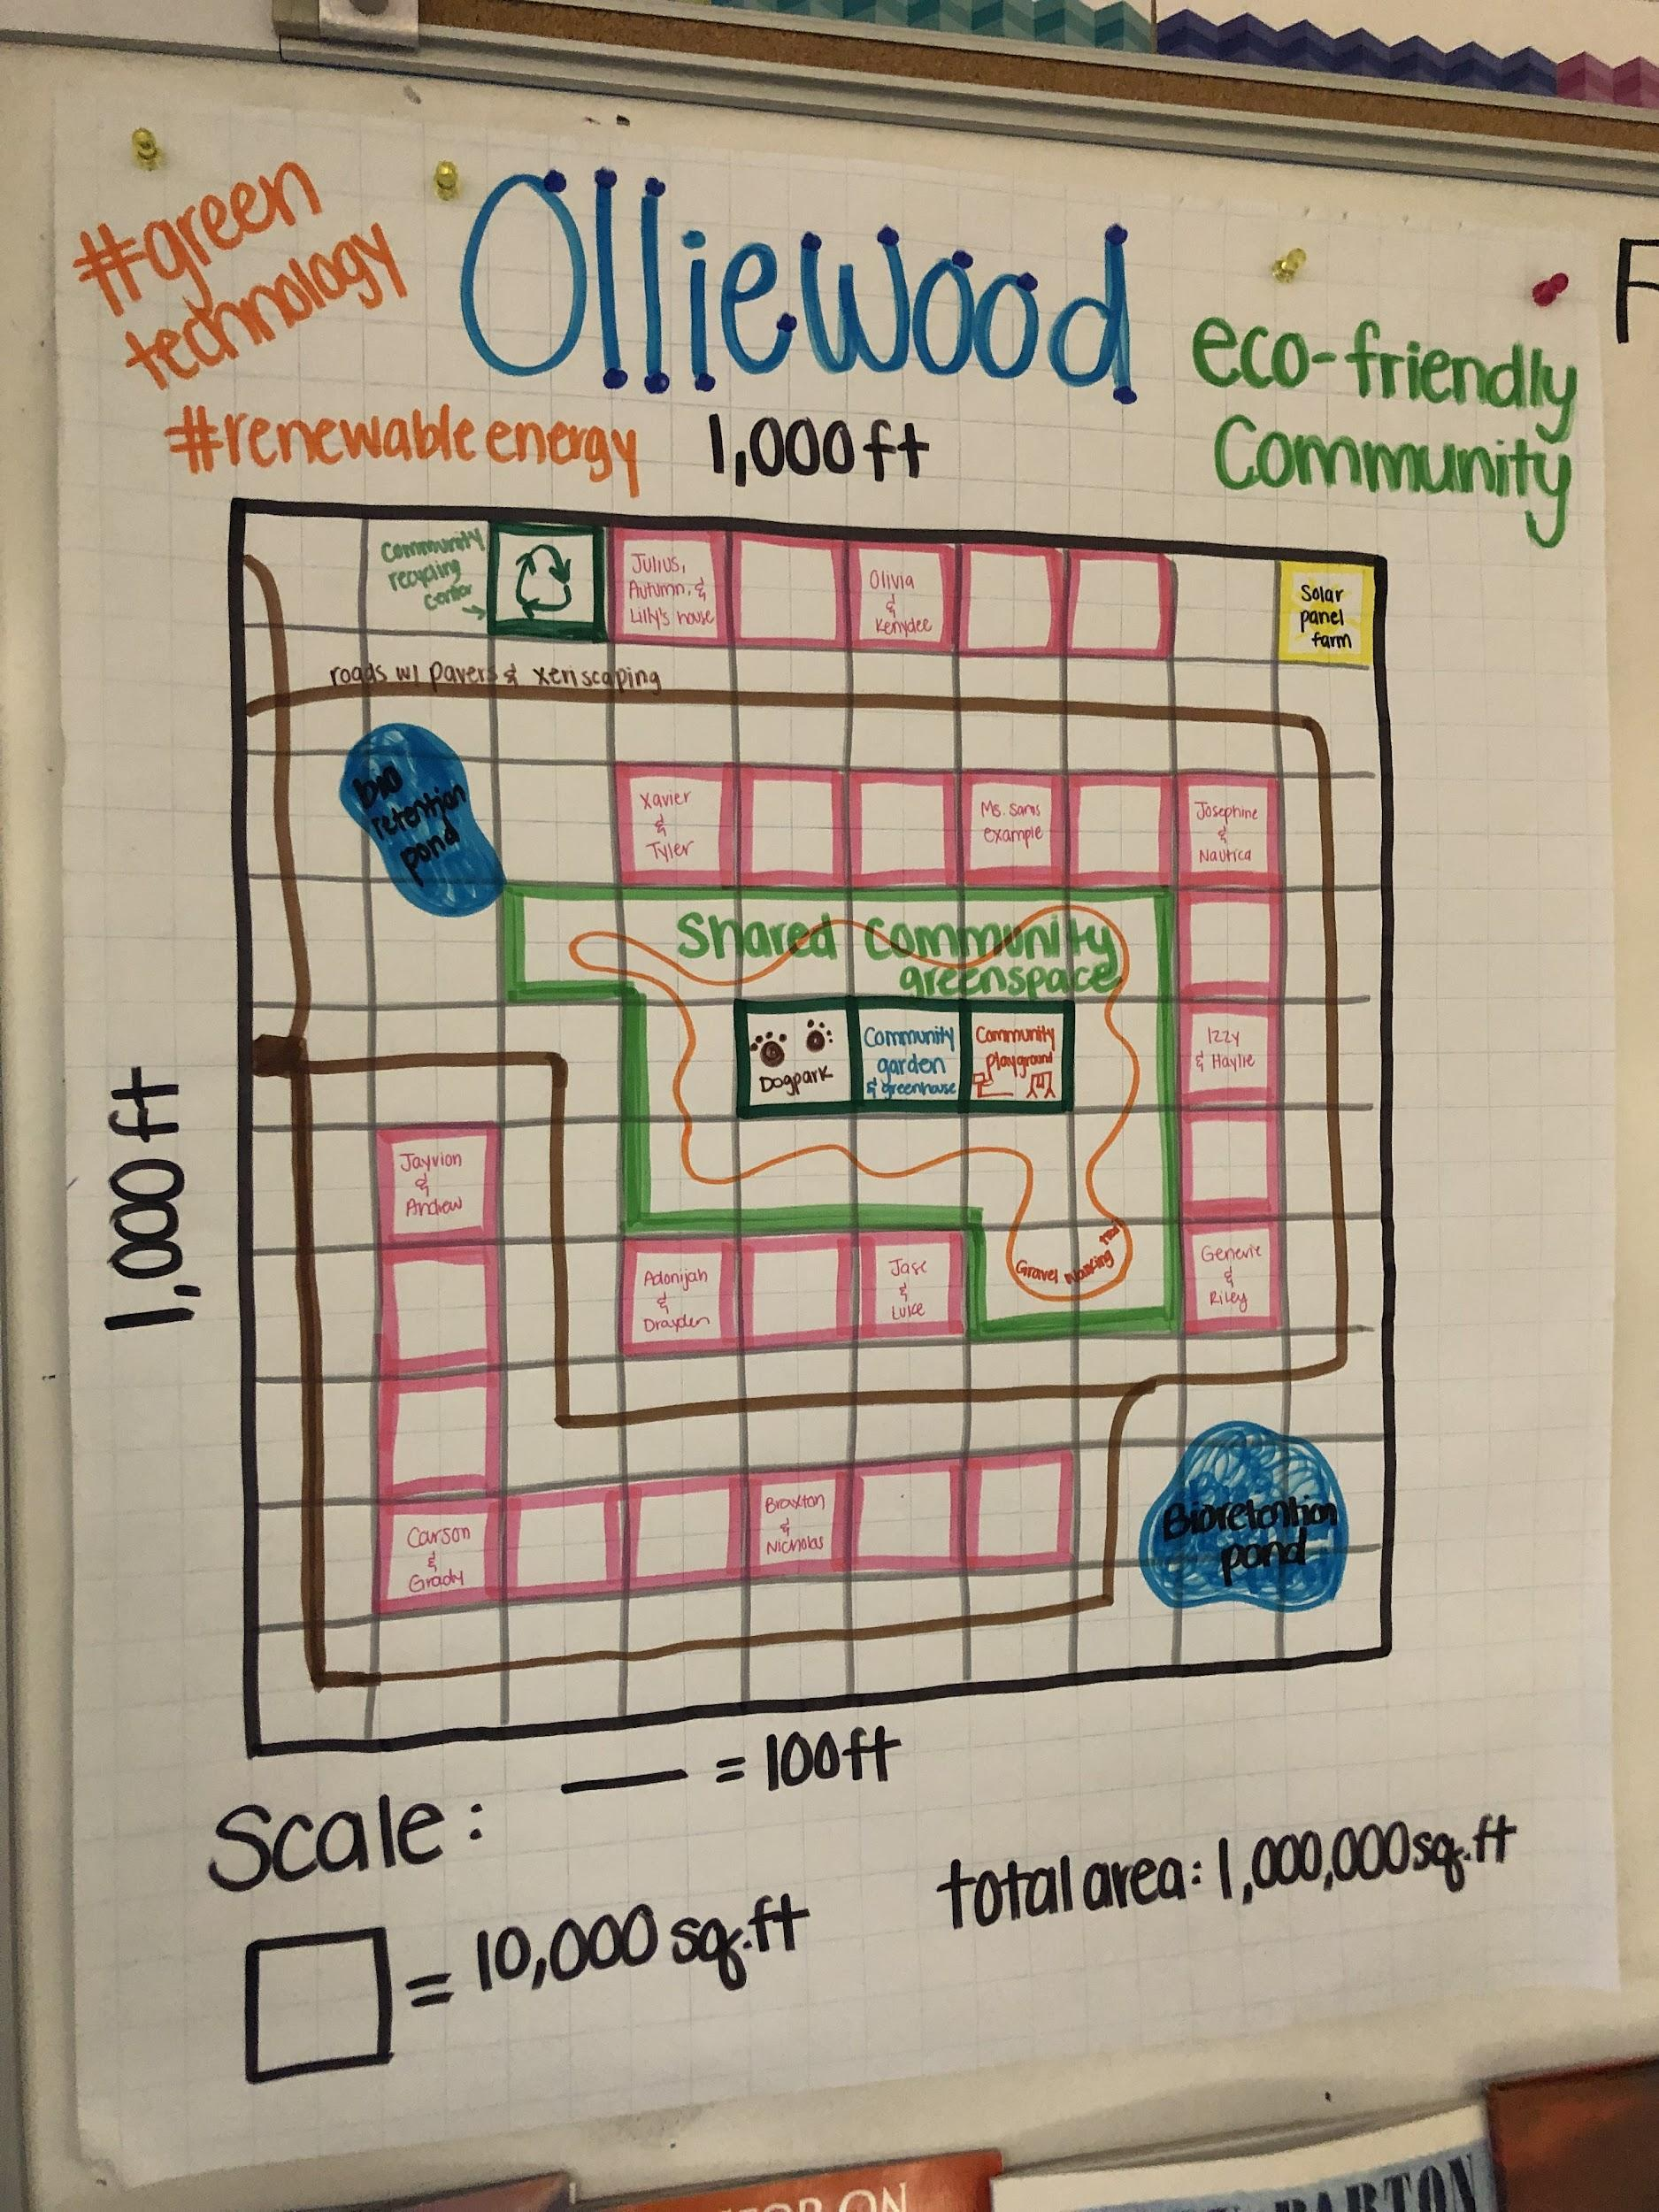 #green
technology
#renewable energy
Olliewood
eco-friendly
Community
1,000 ft
1,000 ft
Community
recycling
Center
Julius,
Autumn, &
Lilly's house
Olivia
&
Kenydee
Solar
panel
farm
roads w/ pavers & xeriscaping
bio
retention
pond
Xavier
&
Tyler
Ms. Sams
example
Josephine
&
Nautica
Shared Community
greenspace
Dogpark
Community
garden
& greenhouse
Community
playground
Izzy
& Haylie
Jayvion
&
Andrew
Adonijah
&
Drayden
Jase
&
Luke
Gravel Walking
Genevie
&
Riley
Carson
&
Grady
Braxton
&
Nicholas
Bioretention
pond
Scale:
= 100ft
= 10,000 sq.ft
total area: 1,000,000 sq.ft
F
ON
BARTON